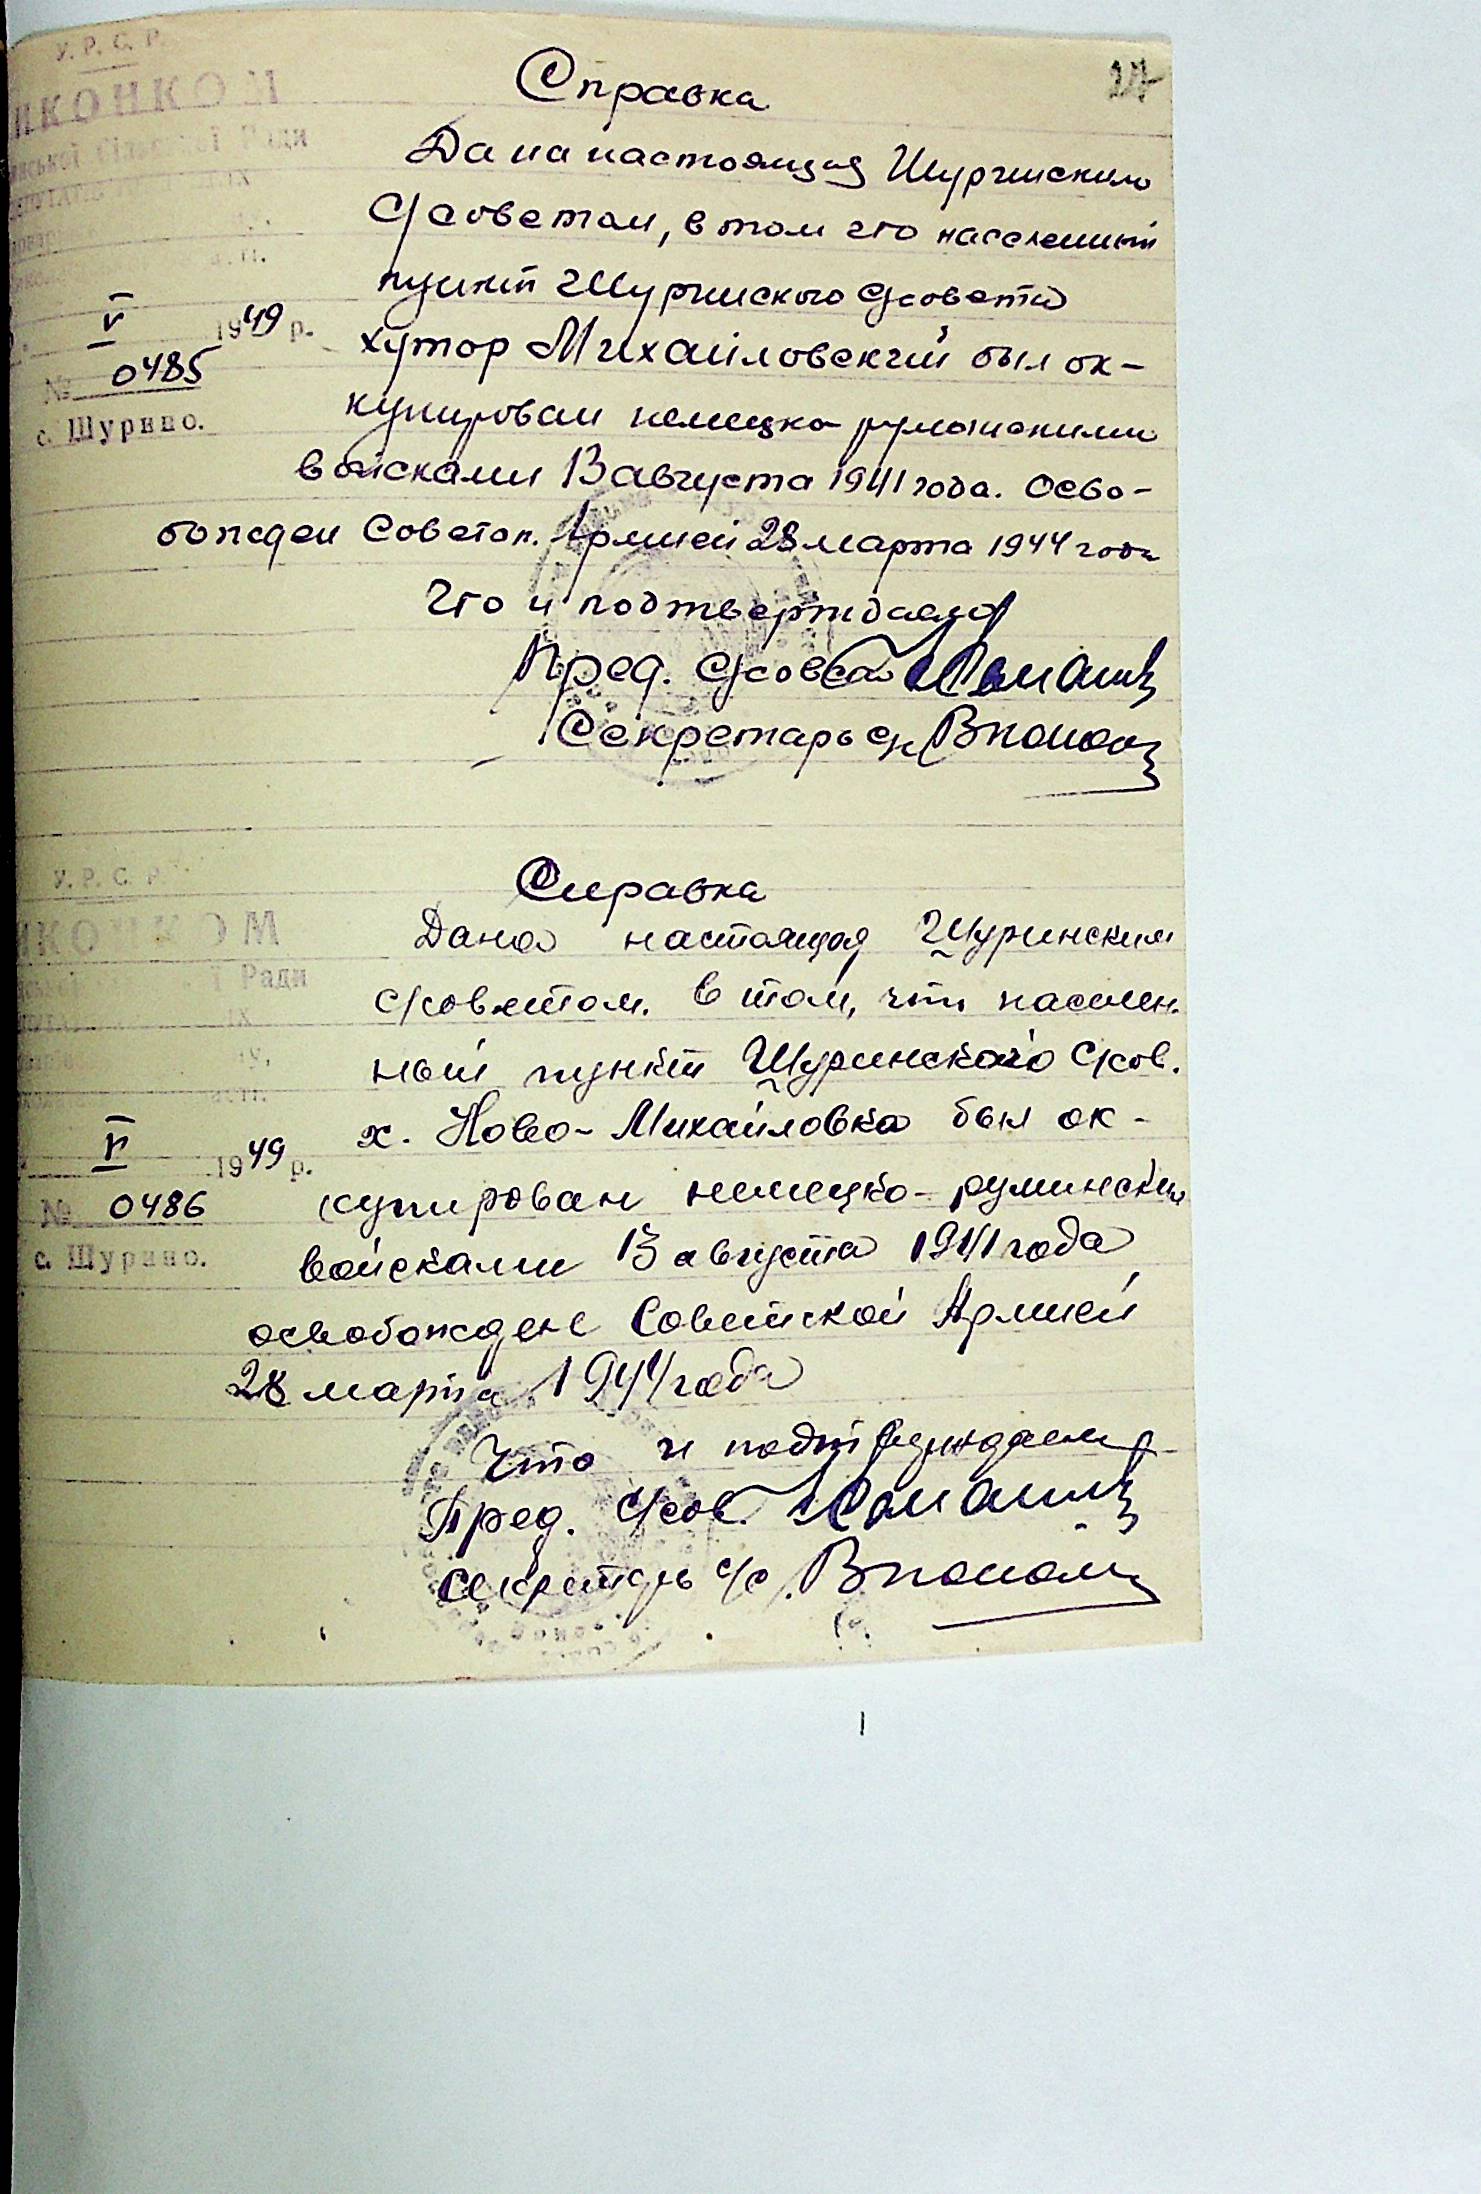 27
У. Р. С. Р.
ИКОНКОМ
нської сільської Ради
ІХ
V 1949 р.
№ 0485
с. Шурино.
Справка
Дана настоящая Шуринским
с/советом, в том что населенный
пункт Шуринского с/совета
хутор Михайловский был ок-
купирован немецко румынскими
войсками 13 августа 1941 года. Осво-
божден Советск. Армией 28 марта 1944 года
Что и подтверждает
Пред. с/совета
Секретарь с/с
У. Р. С. Р.
ИКОНКОМ
ї Ради
ІХ
V 1949 р.
№ 0486
с. Шурино.
Справка
Дана настоящая Шуринским
с/советом. в том, что населен.
ный пункт Шуринского с/сов.
х. Ново-Михайловка был ок-
купирован немецко-румынским
войсками 13 августа 1941 года
освобожден Советской Армией
28 марта 1944 года
Что и подтверждает
Пред. с/сов.
секретарь с/с